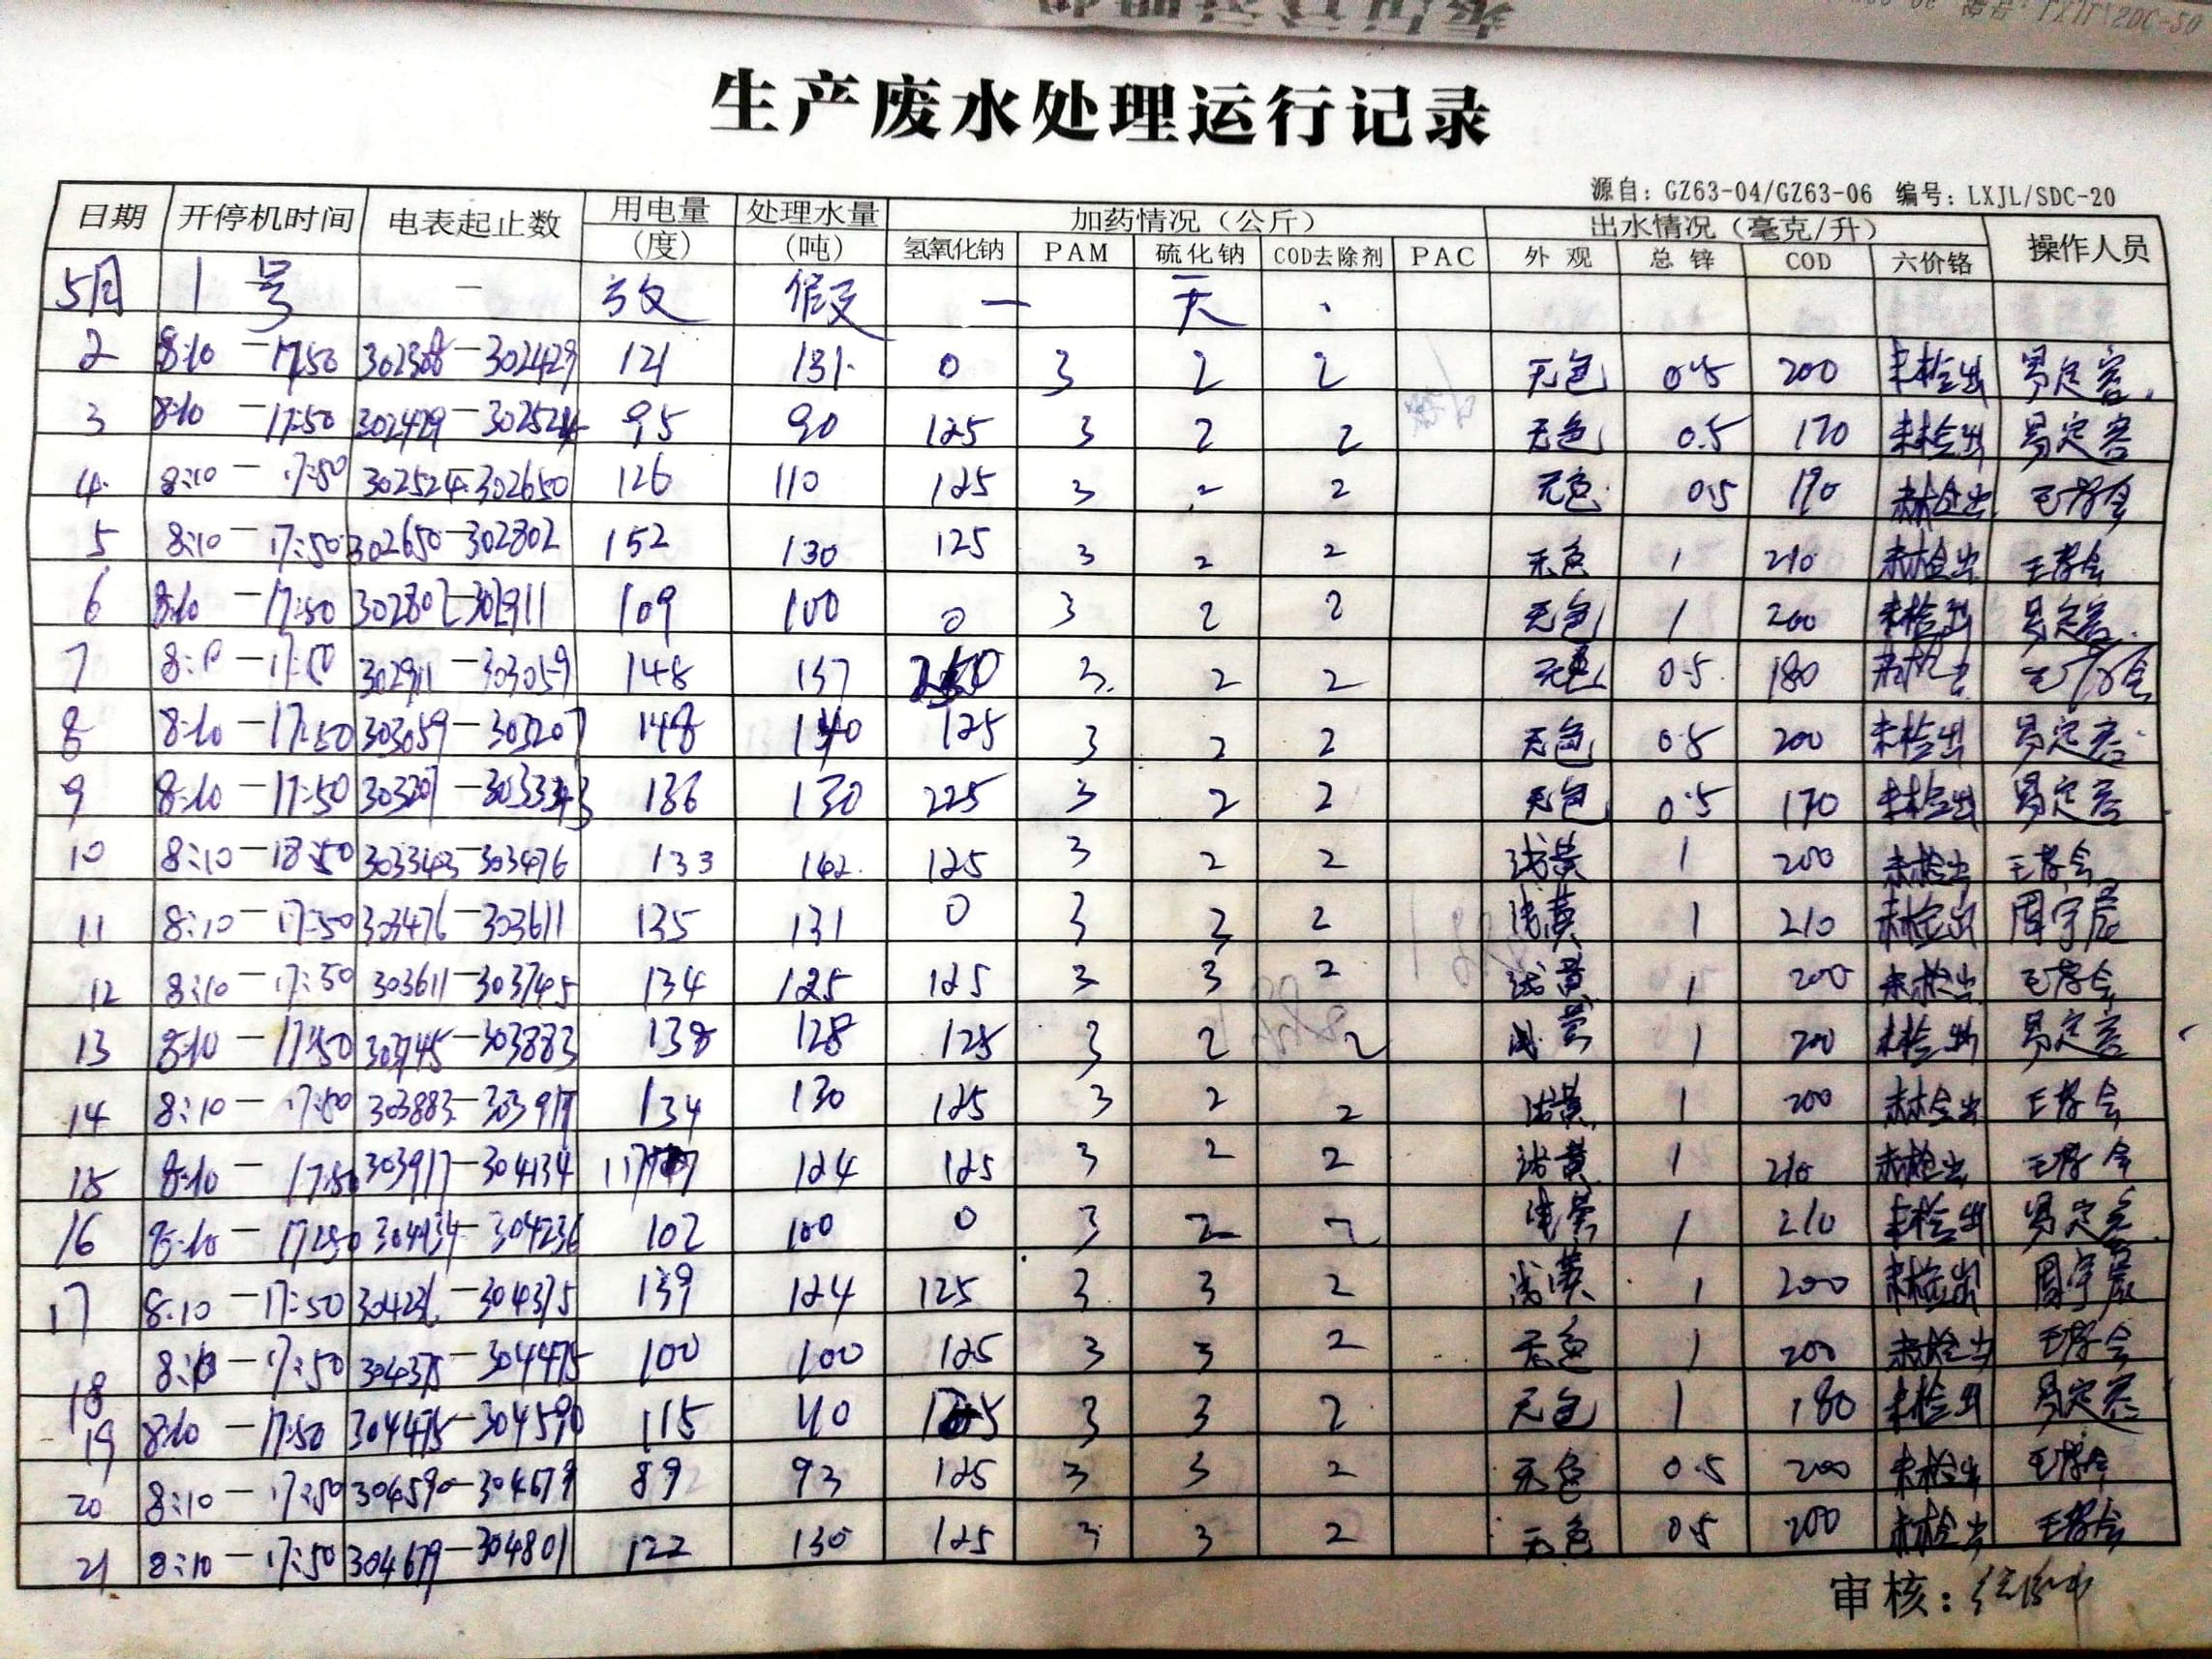 生产废水处理运行记录
源自：GZ63-04/GZ63-06 编号：LXJL/SDC-20
日期 开停机时间 电表起止数 用电量(度) 处理水量(吨) 加药情况（公斤） 出水情况（毫克/升） 操作人员
氢氧化钠 PAM 硫化钠 COD去除剂 PAC 外观 总锌 COD 六价铬
5月 1号 放 假 一 天
2 8:10-17:50 302308-302429 121 131 0 3 2 2 无色 0.5 200 未检出 易定容
3 8:10-17:50 302429-302524 95 90 125 3 2 2 无色 0.5 170 未检出 易定容
4 8:10-17:50 302524-302650 126 110 125 3 2 2 无色 0.5 190 未检出 王存会
5 8:10-17:50 302650-302802 152 130 125 3 2 2 无色 1 210 未检出 王存会
6 8:10-17:50 302802-302911 109 100 0 3 2 2 无色 1 200 未检出 易定容
7 302911-303059 148 137 250 3 2 2 无色 0.5 180 未检出 王存会
8 8:10-17:50 303059-303207 148 140 125 3 2 2 无色 0.5 200 未检出 易定容
9 8:10-17:50 303207-303343 136 130 225 3 2 2 无色 0.5 170 未检出 易定容
10 8:10-18:50 303343-303476 133 142 125 3 2 2 浅黄 1 200 未检出 王存会
11 8:10-17:50 303476-303611 135 131 0 3 3 2 浅黄 1 210 未检出 周宇辰
12 8:10-17:50 303611-303745 134 125 125 3 3 2 浅黄 1 200 未检出 王存会
13 8:10-17:50 303745-303883 138 128 125 3 2 2 浅黄 1 200 未检出 易定容
14 8:10-17:50 303883-303917 134 130 125 3 2 2 浅黄 1 200 未检出 王存会
15 8:10-17:50 303917-304134 124 125 3 2 2 浅黄 1 210 未检出 王存会
16 8:10-17:50 304134-304236 102 100 0 3 2 2 浅黄 1 210 未检出 易定容
17 8:10-17:50 304236-304375 139 124 125 3 3 2 浅黄 1 200 未检出 周宇辰
18 8:10-17:50 304375-304475 100 100 125 3 3 2 无色 1 200 未检出 王存会
19 8:10-17:50 304475-304590 115 110 125 3 3 2 无色 1 180 未检出 易定容
20 8:10-17:50 304590-304679 89 93 125 3 3 2 无色 0.5 200 未检出 王存会
21 8:10-17:50 304679-304801 122 130 125 3 3 2 无色 0.5 200 未检出 王存会
审核：